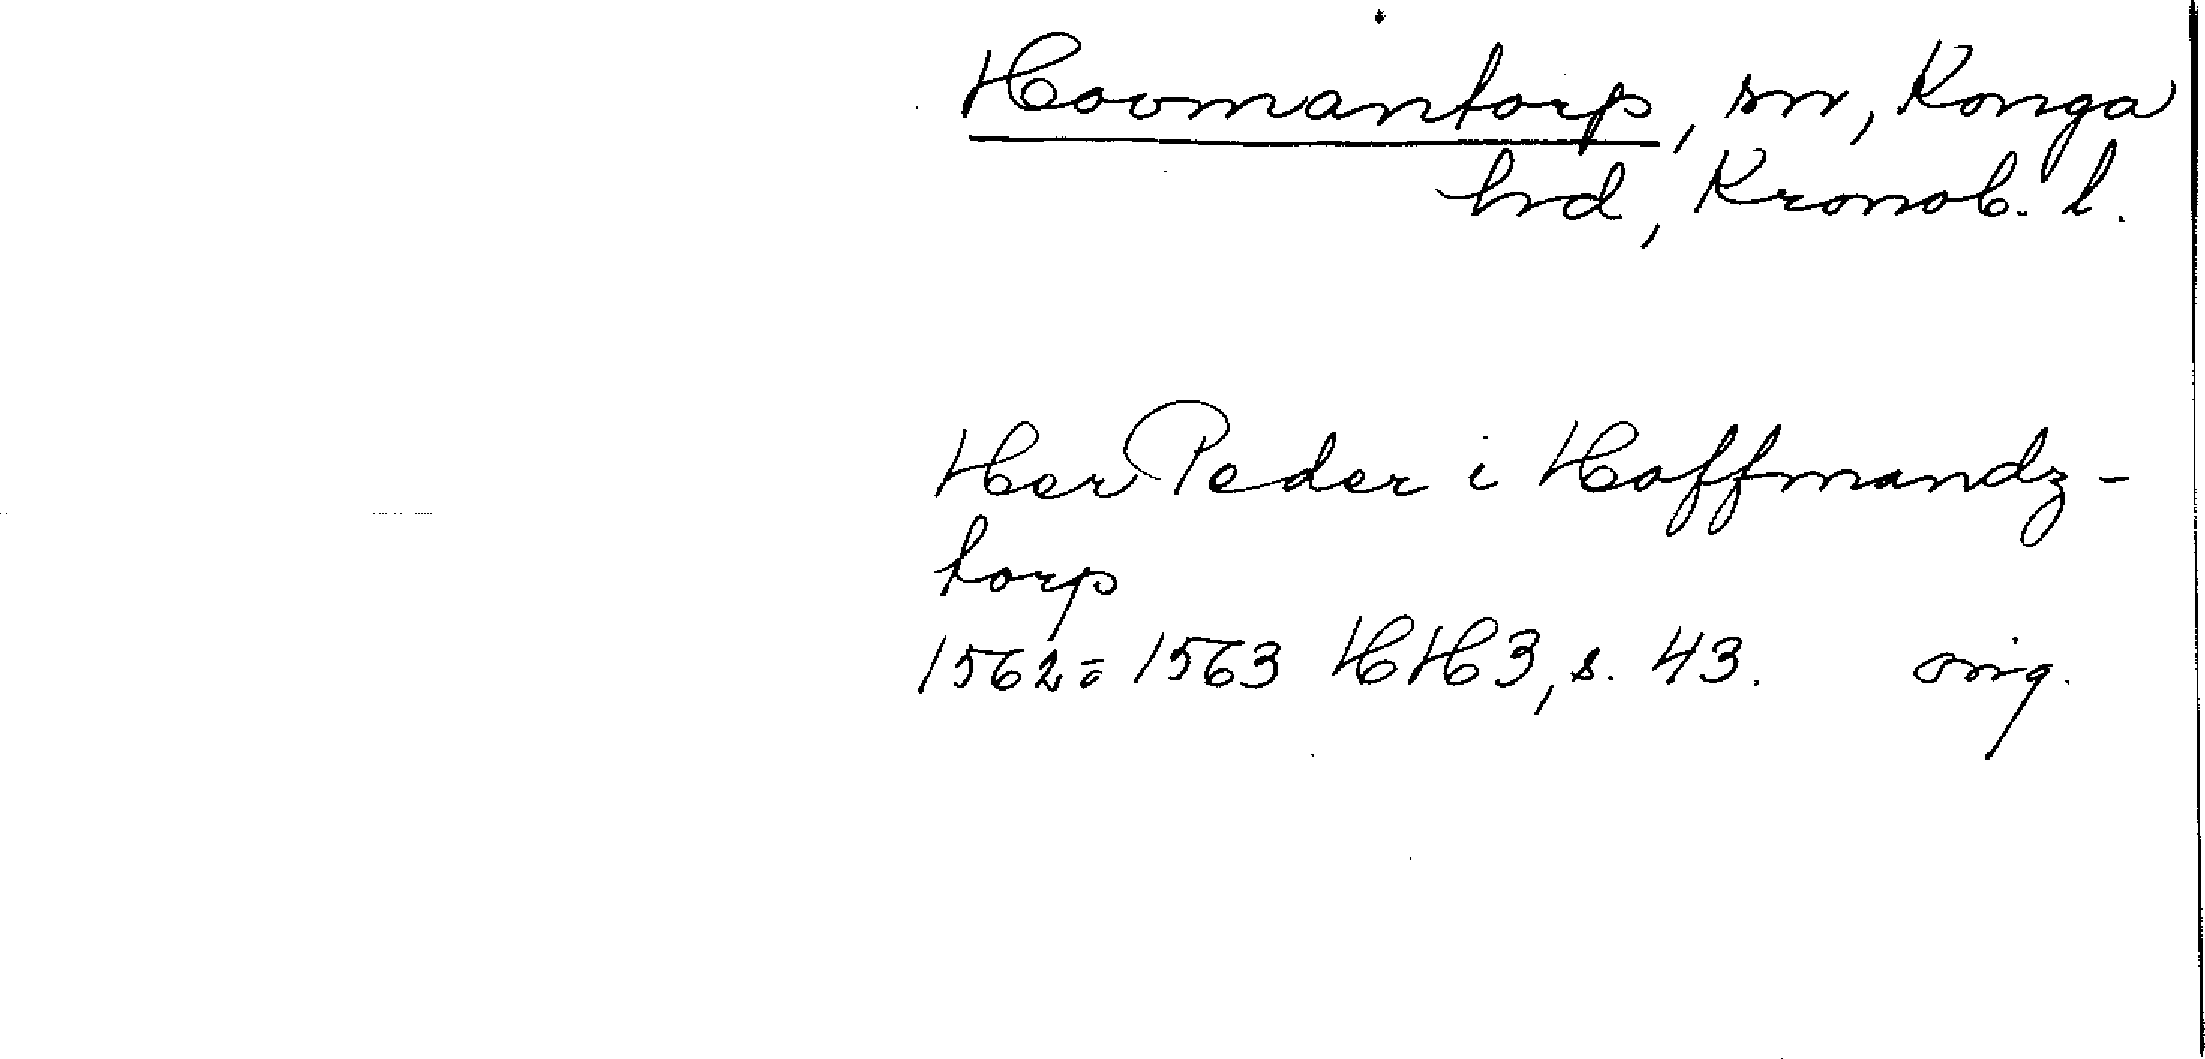 Hovmantorp, sn, Konga
hrd, Kronob. l.
Her Peder i Hoffmandz-
torp
1562-1563 HH3, s. 43. orig.